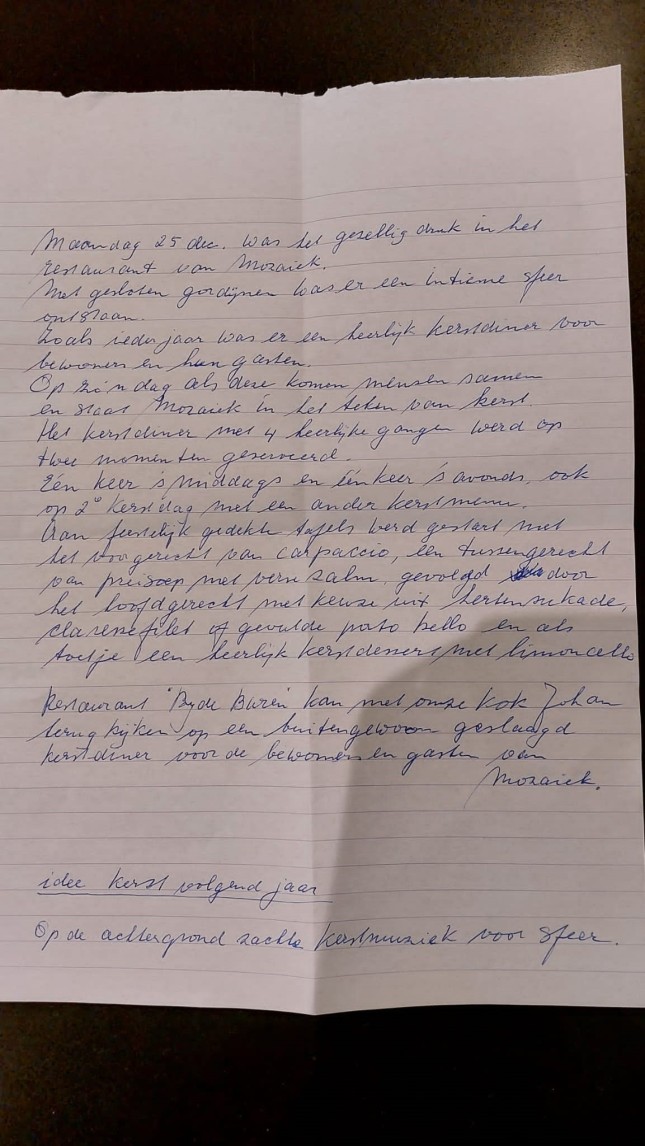 Maandag 25 dec. was het gezellig druk in het
restaurant van Mozaiek.
Met gesloten gordijnen was er een intieme sfeer
ontstaan.
Zoals ieder jaar was er een heerlijk kerstdiner voor
bewoners en hun gasten.
Op zo'n dag als deze komen mensen samen
en staat Mozaiek in het teken van kerst.
Het kerstdiner met 4 heerlijke gangen werd op
twee momenten geserveerd.
Eén keer 's middags en één keer 's avonds, ook
op 2e kerstdag met een ander kerstmenu.
Aan feestelijk gedekte tafels werd gestart met
het voorgerecht van carpaccio, een tussengerecht
van preisoep met verse zalm, gevolgd door
het hoofdgerecht met keuze uit hertensukade,
claressefilet of gevulde porto bello en als
toetje een heerlijk kerstdessert met limoncello
Restaurant "By de Buren" kan met onze kok Johan
terug kijken op een buitengewoon geslaagd
kerstdiner voor de bewoners en gasten van
Mozaiek.
idee kerst volgend jaar
Op de achtergrond zachte kerstmuziek voor sfeer.